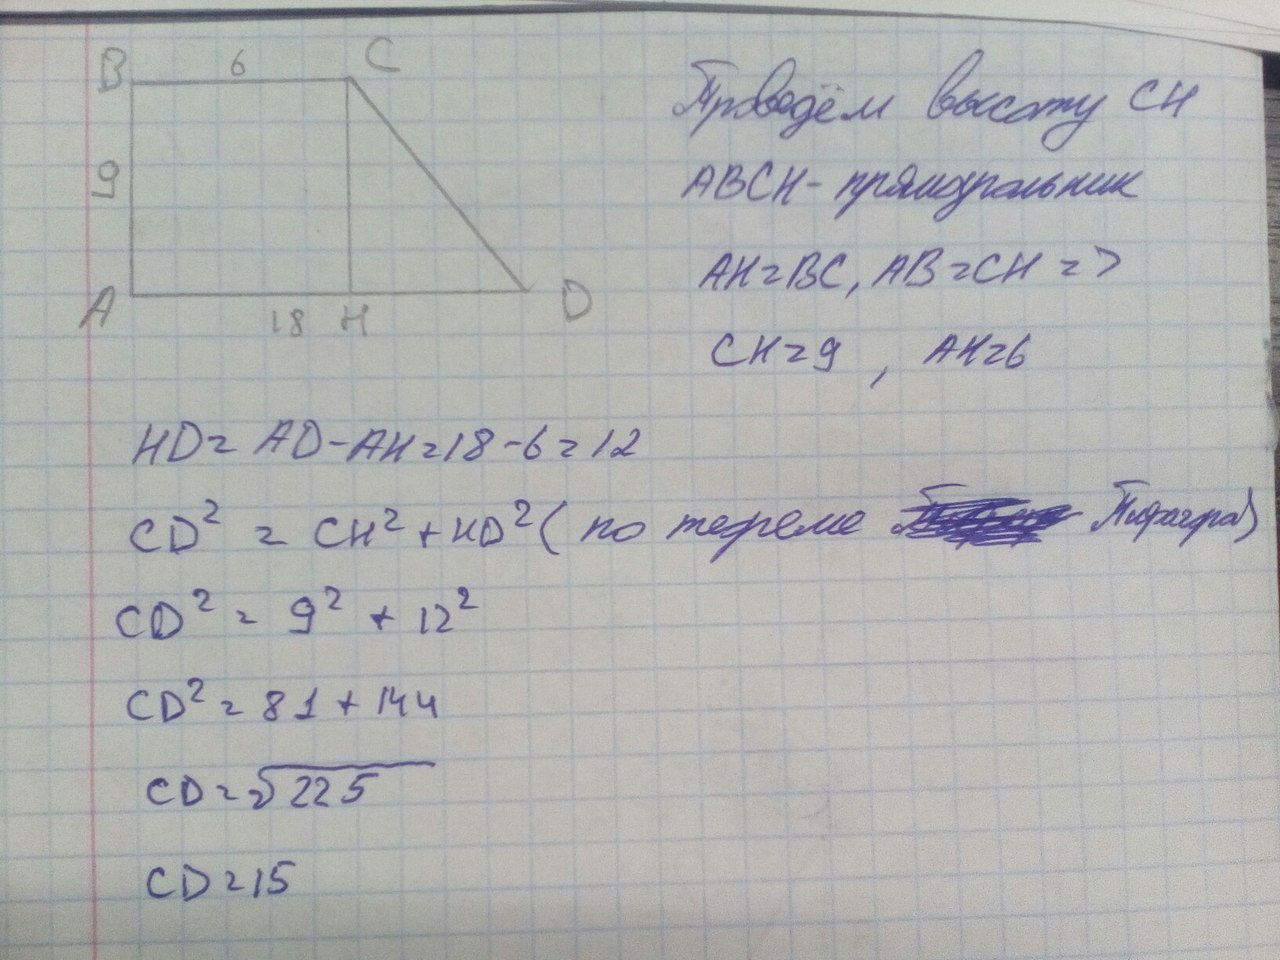 B 6 C
9
A 18 H D
Проведём высоту CH
ABCH - прямоугольник
AH = BC, AB = CH =>
CH = 9, AH = 6
HD = AD - AH = 18 - 6 = 12
CD² = CH² + HD² (по теореме Пифагора)
CD² = 9² + 12²
CD² = 81 + 144
CD = √225
CD = 15